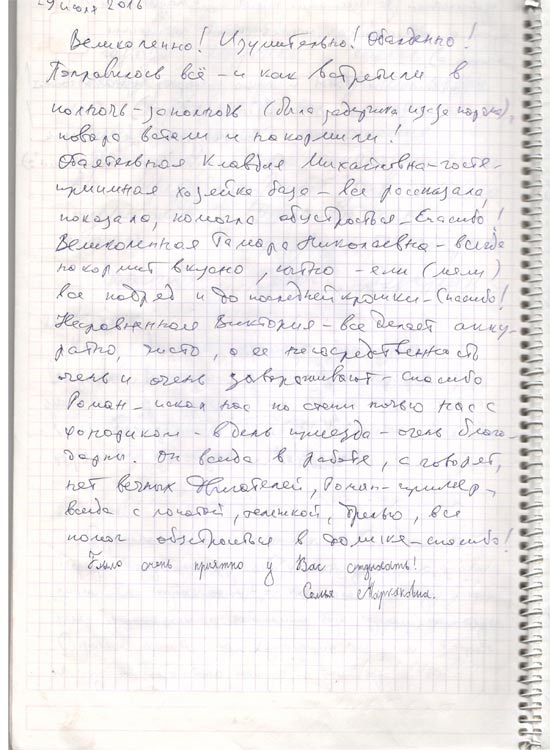 29 июля 2016
Великолепно! Изумительно! Обалденно!
Понравилось всё - и как встретили в
полночь-заполночь (была задержка из-за парома),
повара встали и покормили!
Обаятельная Клавдия Михайловна - госте-
приимная хозяйка базы - все рассказала,
показала, помогла обустроиться - Спасибо!
Великолепная Тамара Николаевна - всегда
покормит вкусно, сытно - ели (мели)
все подряд и до последней крошки - Спасибо!
Несравненная Виктория - все делает акку-
ратно, чисто, а ее непосредственность
очень и очень завораживают - спасибо
Роман - искал нас по степи ночью нас с
фонариком - в день приезда - очень благо-
дарны. Он всегда в работе, а говорят,
нет вечных двигателей, Роман - пример,
всегда с лопатой, тележкой, дрелью, все
помог обустроиться в домике - спасибо!
Было очень приятно у Вас отдыхать!
Семья